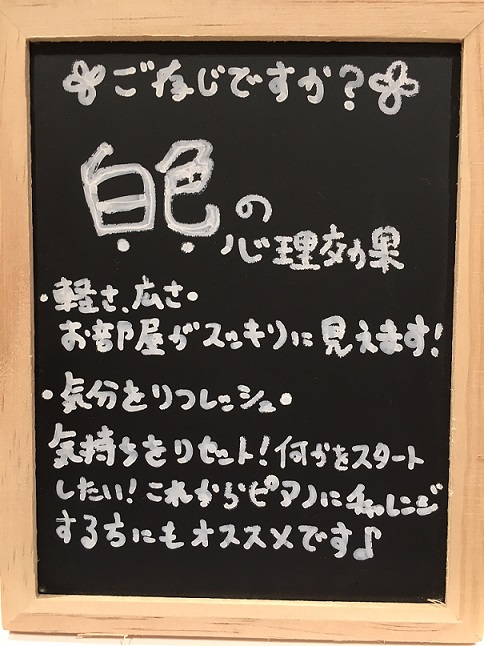 ご存じですか?
白色の
心理効果
・軽さ、広さ・
お部屋がスッキリに見えます!
・気分をリフレッシュ・
気持ちをリセット!何かをスタート
したい!これからピアノにチャレンジ
する方にもオススメです♪